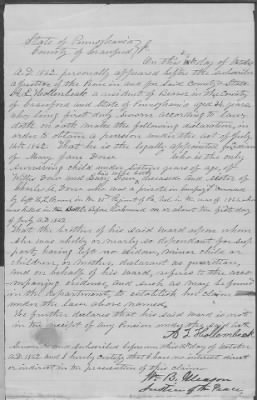 State of Pennsylvania
County of Crawford
On this day of October
A.D. 1862 personally appeared before the subscriber
a Justice of the Peace in and for said County & State
A. L. Hollenbeak a resident of in the County
of Crawford and State of Pennsylvania aged 34 years
who being first duly sworn according to law
doth on oath make the following declaration in
order to obtain a pension under the act of July
14th 1862. That he is the legally appointed guardian
of Mary Jane who is the only
surviving child under sixteen years of age, of
and his wife deceased and sister of
Charles H. who was a private in Company commanded
by Capt in the Regt of Pa. Vol. in the war of 1861, who
was killed in the Battle before Richmond on or about the first day
of July A.D. 1862
That the brother of his said ward upon whom
she was wholly or mainly so dependent for sup-
port, having left no widow, minor child or
children, or mother, declarant as guardian
and on behalf of his ward, refers to the accom-
panying evidence, and such as may be found
in the department, to establish her claim
under the law above named.
He further declares that his said ward is not
in the receipt of any Pension under the said act.
A. L. Hollenbeak
Sworn and subscribed before me this day of October
A.D. 1862 and I hereby certify that I have no interest direct
or indirect in the prosecution of this claim
Wm B.
Justice of the Peace